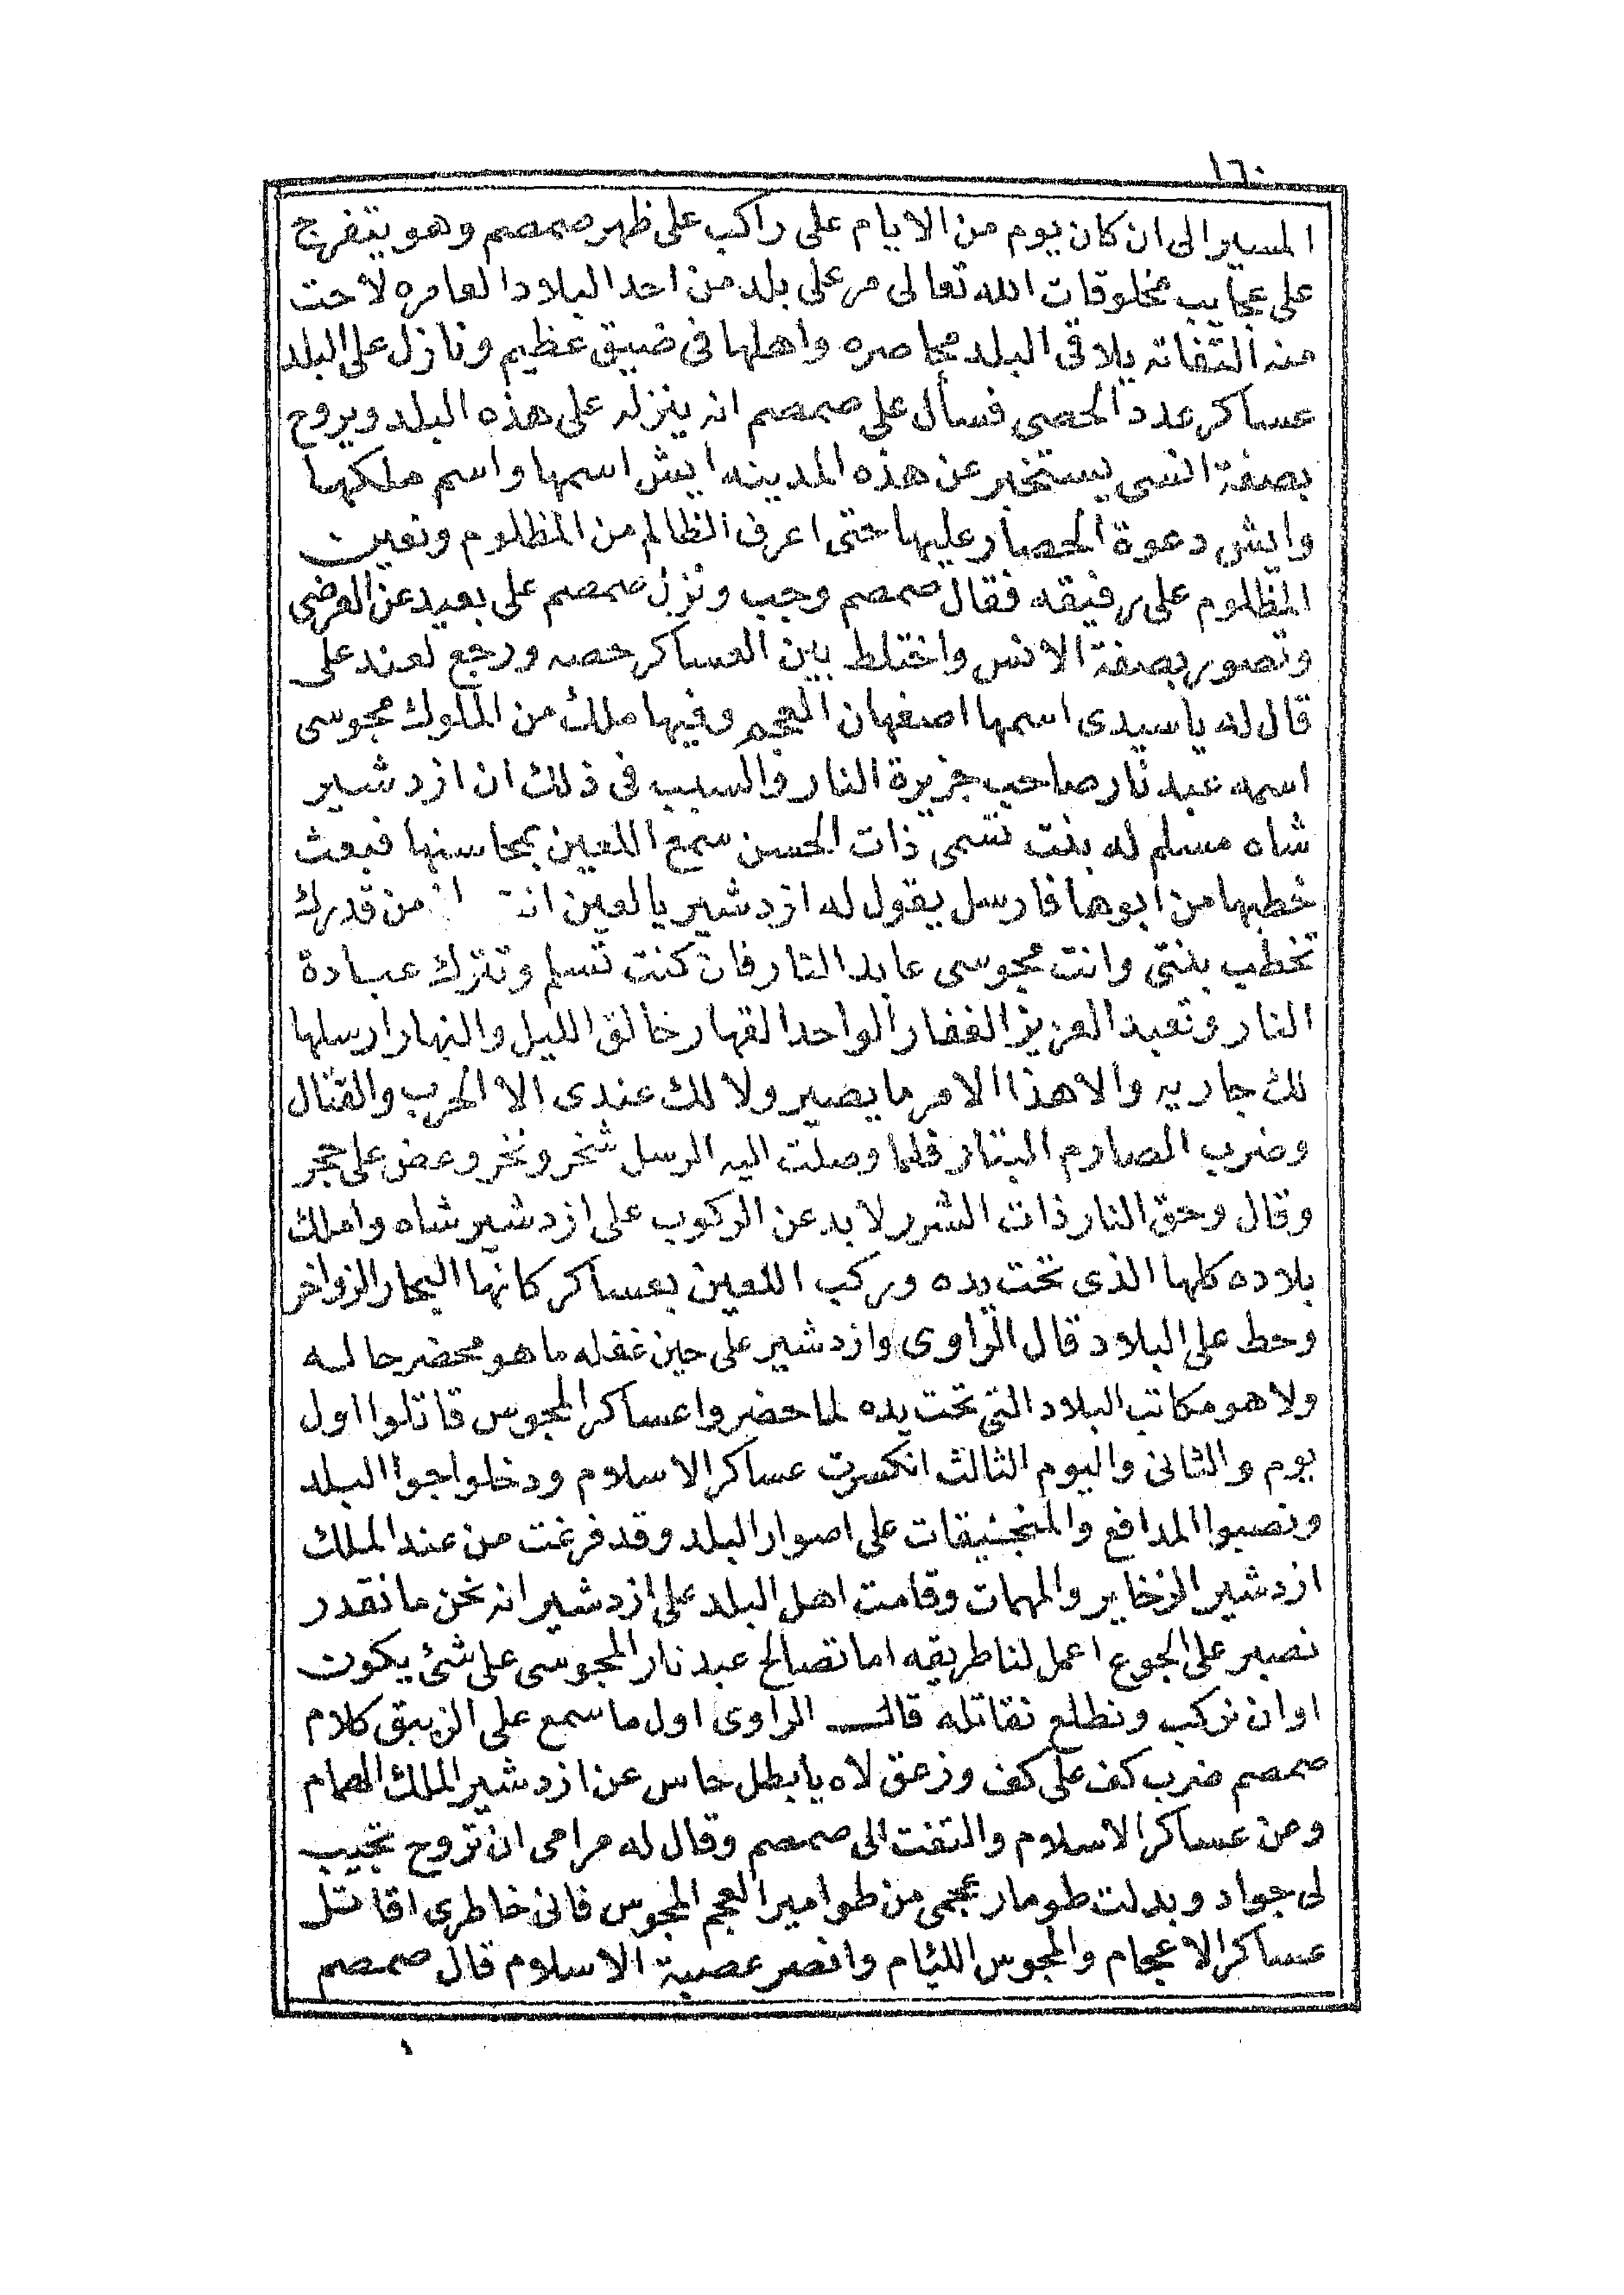 ١٦٠
المسير الى ان كان يوم من الايام على راكب على ظهر صمصم وهو يتفرج
على عجايب مخلوقات الله تعالى مر على بلد من احد البلاد العامره لاحت
منه التفاته يلاقى البلد محاصره واهلها فى ضيق عظيم ونازل على البلد
عساكر عدد الحصى فسأل على صمصم انه ينزله على هذه البلد ويروح
بصفة انسى يستخبر عن هذه المدينه ايش اسمها واسم ملكها
وايش دعوة الحصار عليها حتى اعرف الظالم من المظلوم ونعين
المظلوم على رفيقه فقال صمصم وجب ونزل صمصم على بعيد عن العرضى
وتصور بصفة الانس واختلط بين العساكر حصه ورجع لعند على
قال له يا سيدى اسمها اصفهان العجم وفيها ملك من الملوك مجوسى
اسمه عبد نار صاحب جزيرة النار والسبب فى ذلك ان ازدشير
شاه مسلم له بنت تسمى ذات الحسن سمع اللعين بمحاسنها فبعث
خطبها من ابوها فارسل يقول له ازدشير يا لعين انت من قدرك
تخطب بنتى وانت مجوسى عابد النار فان كنت تسلم وتترك عبادة
النار وتعبد العزيز الغفار الواحد القهار خالق الليل والنهار ارسلها
لك جاريه والا هذا الامر ما يصير ولا لك عندى الا الحرب والقتال
وضرب الصارم البتار فلما وصلت اليه الرسل شخر ونخر وعض على حجر
وقال وحق النار ذات الشرر لا بد عن الركوب على ازدشير شاه واملك
بلاده كلها الذى تحت يده وركب اللعين بعساكر كانها البحار الزواخر
وحط على البلاد قال الراوى وازدشير على حين غفله ما هو محضر حاله
ولا هو مكاتب البلاد التى تحت يده لما حضروا عساكر المجوس قاتلوا اول
يوم والثانى واليوم الثالث انكسرت عساكر الاسلام ودخلوا جوا البلد
ونصبوا المدافع والمنجنيقات على اصوار البلد وقد فرغت من عند الملك
ازدشير الزخاير والمهمات وقامت اهل البلد على ازدشير انه نحن ما نقدر
نصبر على الجوع اعمل لنا طريقه اما تصالح عبد نار المجوسى على شئ يكون
او ان نركب ونطلع نقاتله قال الراوى اول ما سمع على الزيبق كلام
صمصم ضرب كف على كف وزعق لاه يا بطل حاس عن ازدشير الملك الهمام
وعن عساكر الاسلام والتفت الى صمصم وقال له مرامى ان تروح تجيب
لى جواد وبدلت طومار عجمى من طوامير العجم المجوس فانى خاطرى اقاتل
عساكر الاعجام والمجوس اللئام وانصر عصبة الاسلام قال صمصم